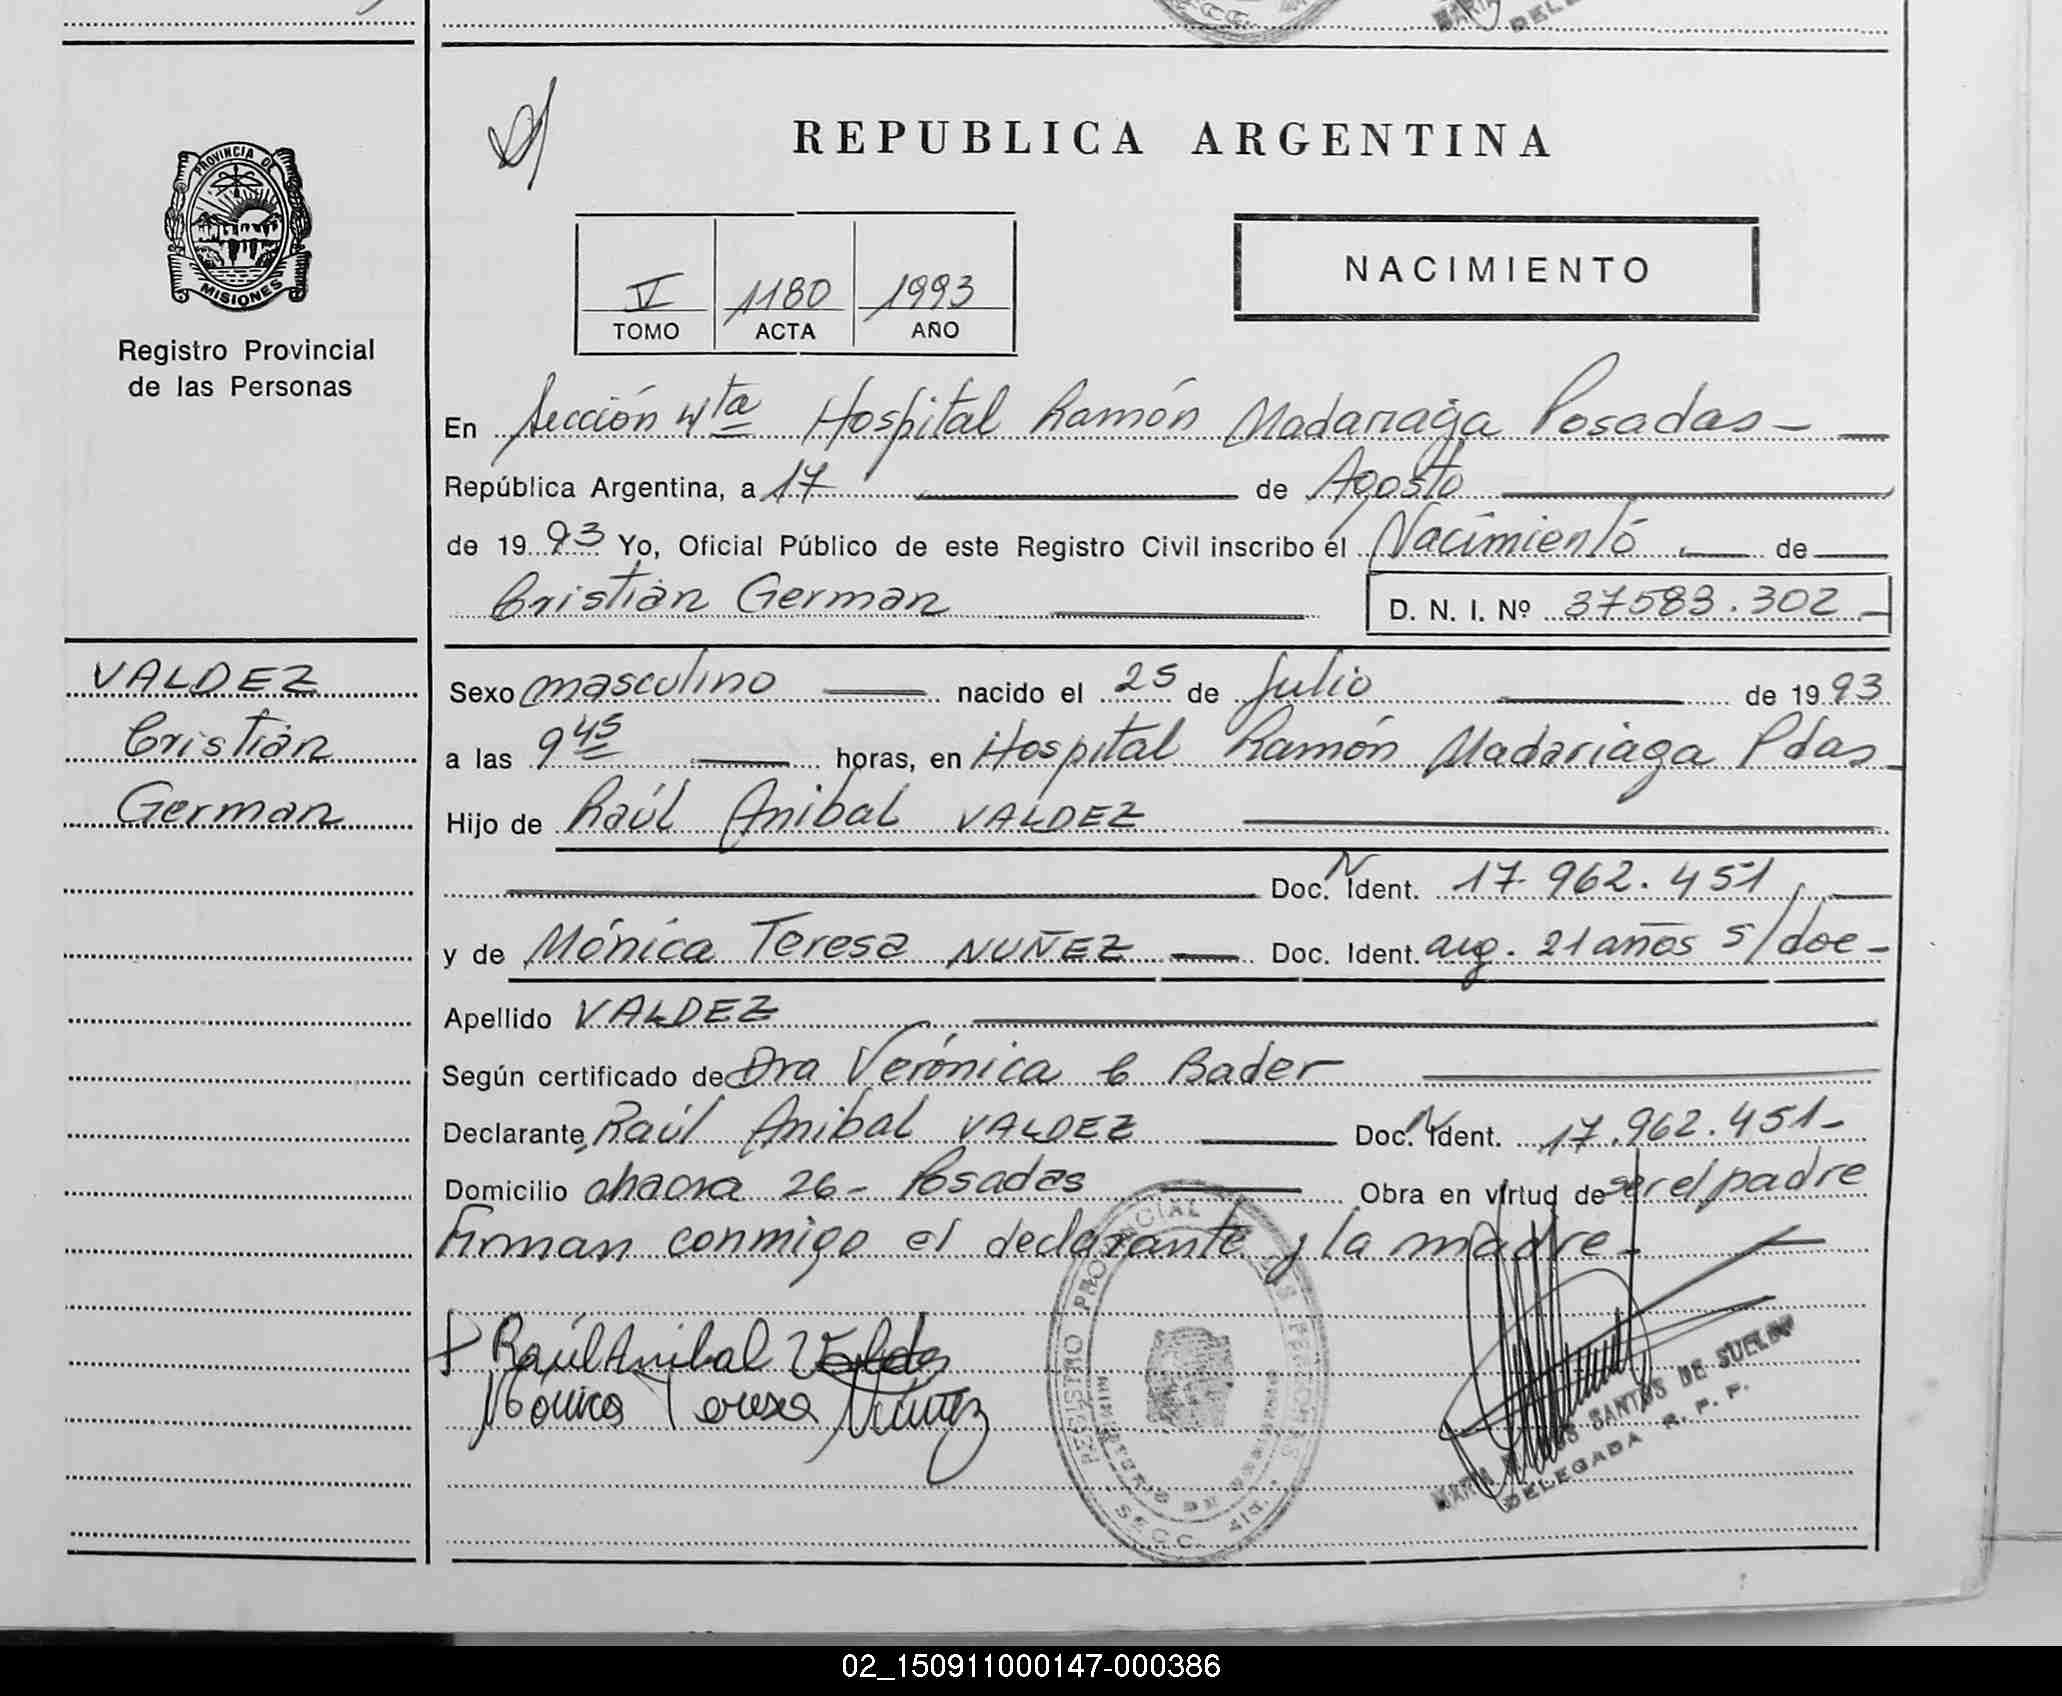 REPUBLICA ARGENTINA
PROVINCIA DE
MISIONES
Registro Provincial
de las Personas
NACIMIENTO
V 1180 1993
TOMO ACTA AÑO
En Sección 4ta Hospital Ramón Madariaga Posadas —
República Argentina, a 17 de Agosto
de 1993 Yo, Oficial Público de este Registro Civil inscribo el Nacimiento de
Cristian German D. N. I. Nº 37583.302
VALDEZ
Cristian
German
Sexo masculino nacido el 25 de Julio de 1993
a las 9 45 horas, en Hospital Ramón Madariaga Pdas
Hijo de Raúl Anibal VALDEZ
Doc. N Ident. 17.962.451
y de Mónica Teresa NUÑEZ Doc. Ident. arg. 21 años s/doc
Apellido VALDEZ
Según certificado de Dra Verónica C Bader
Declarante Raúl Anibal VALDEZ Doc. N Ident. 17.962.451
Domicilio chacra 26 - Posadas Obra en virtud de ser el padre
Firman conmigo el declarante y la madre
Raúl Anibal Valdez
Mónica Teresa Nuñez
REGISTRO PROVINCIAL DE LAS PERSONAS
MINISTERIO DE GOBIERNO
SECC. 4ta.
SANTOS DE
DELEGADA R. P. P.
02_150911000147-000386